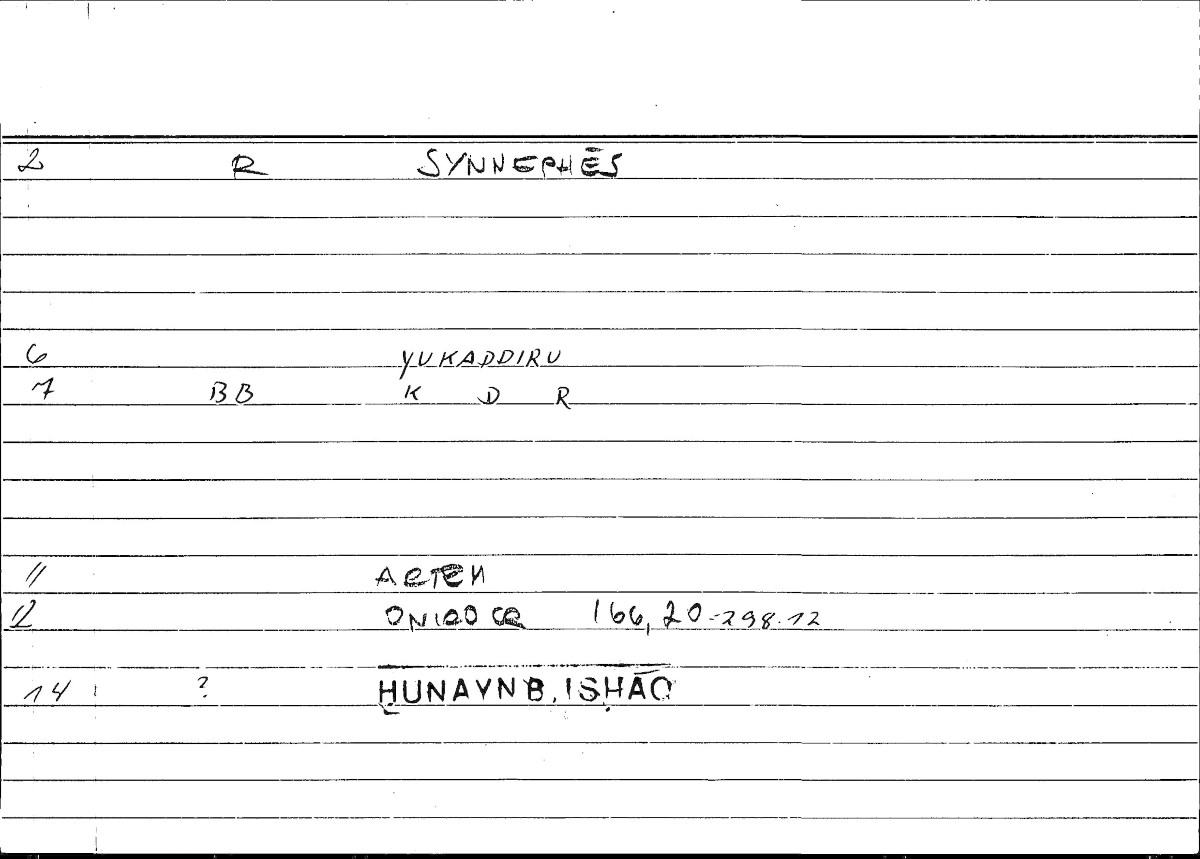 2 R SYNNEPHĒS
6 YUKADDIRU
7 BB K D R
11 ARTEM
12 ONIROCR 166,20-298.12
14 ? ḤUNAYN B. ISḤĀQ